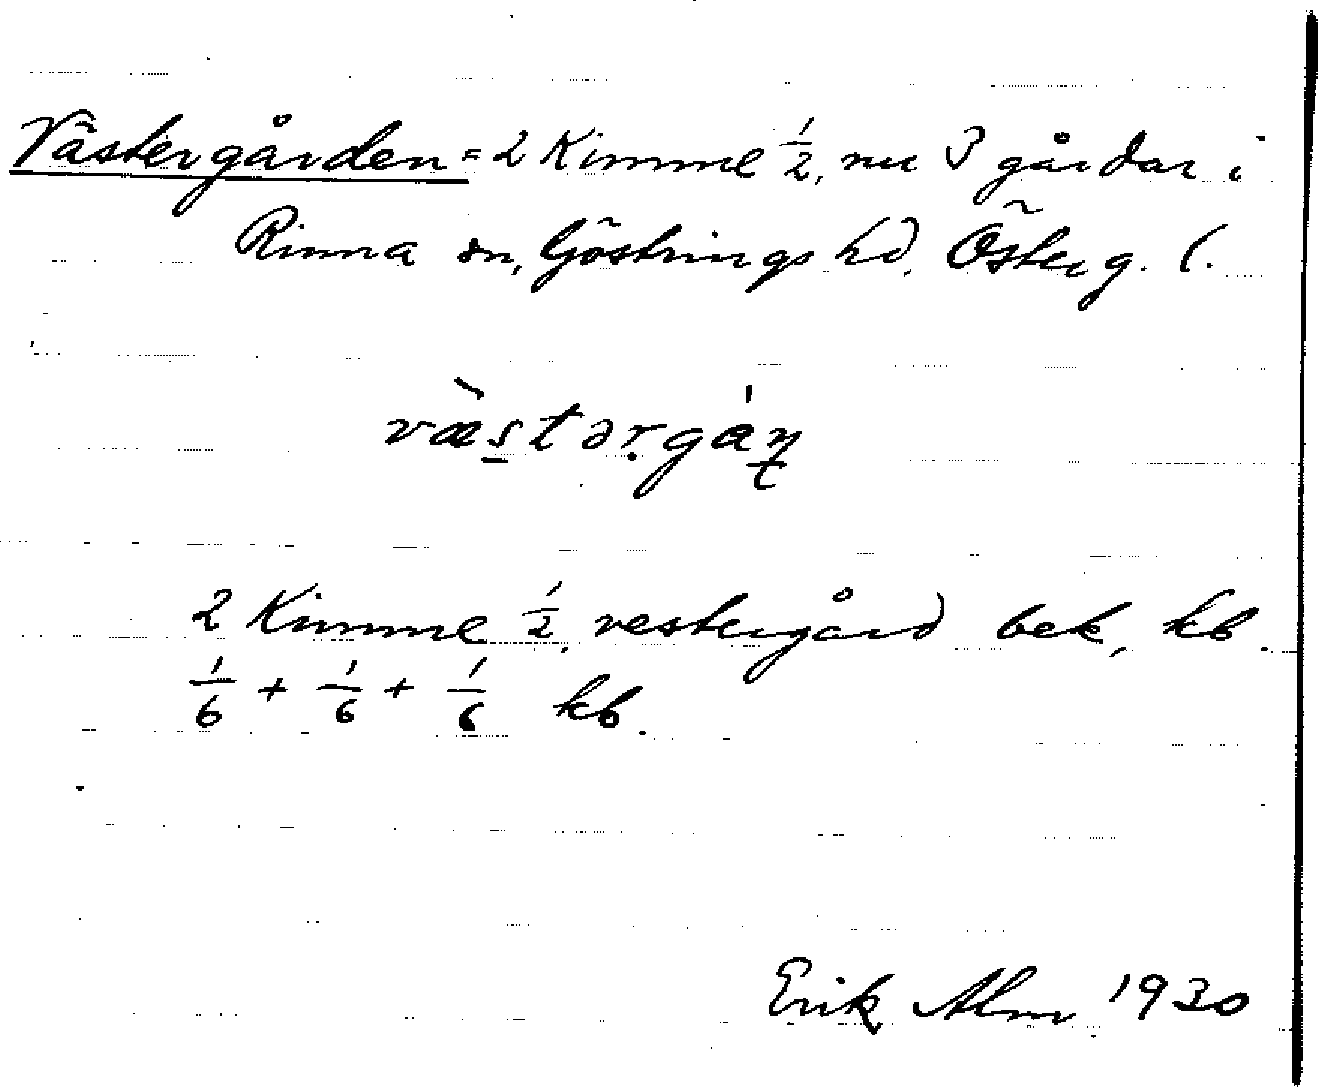 Västergården = 2 Kimme 1/2, nu 3 gårdar i
Rinna sn, Göstrings hd, Österg. l.
væstərgáɳ
2 Kimme 1/2, vestergård bek, kb.
1/6 + 1/6 + 1/6 kb.
Erik Alm 1930